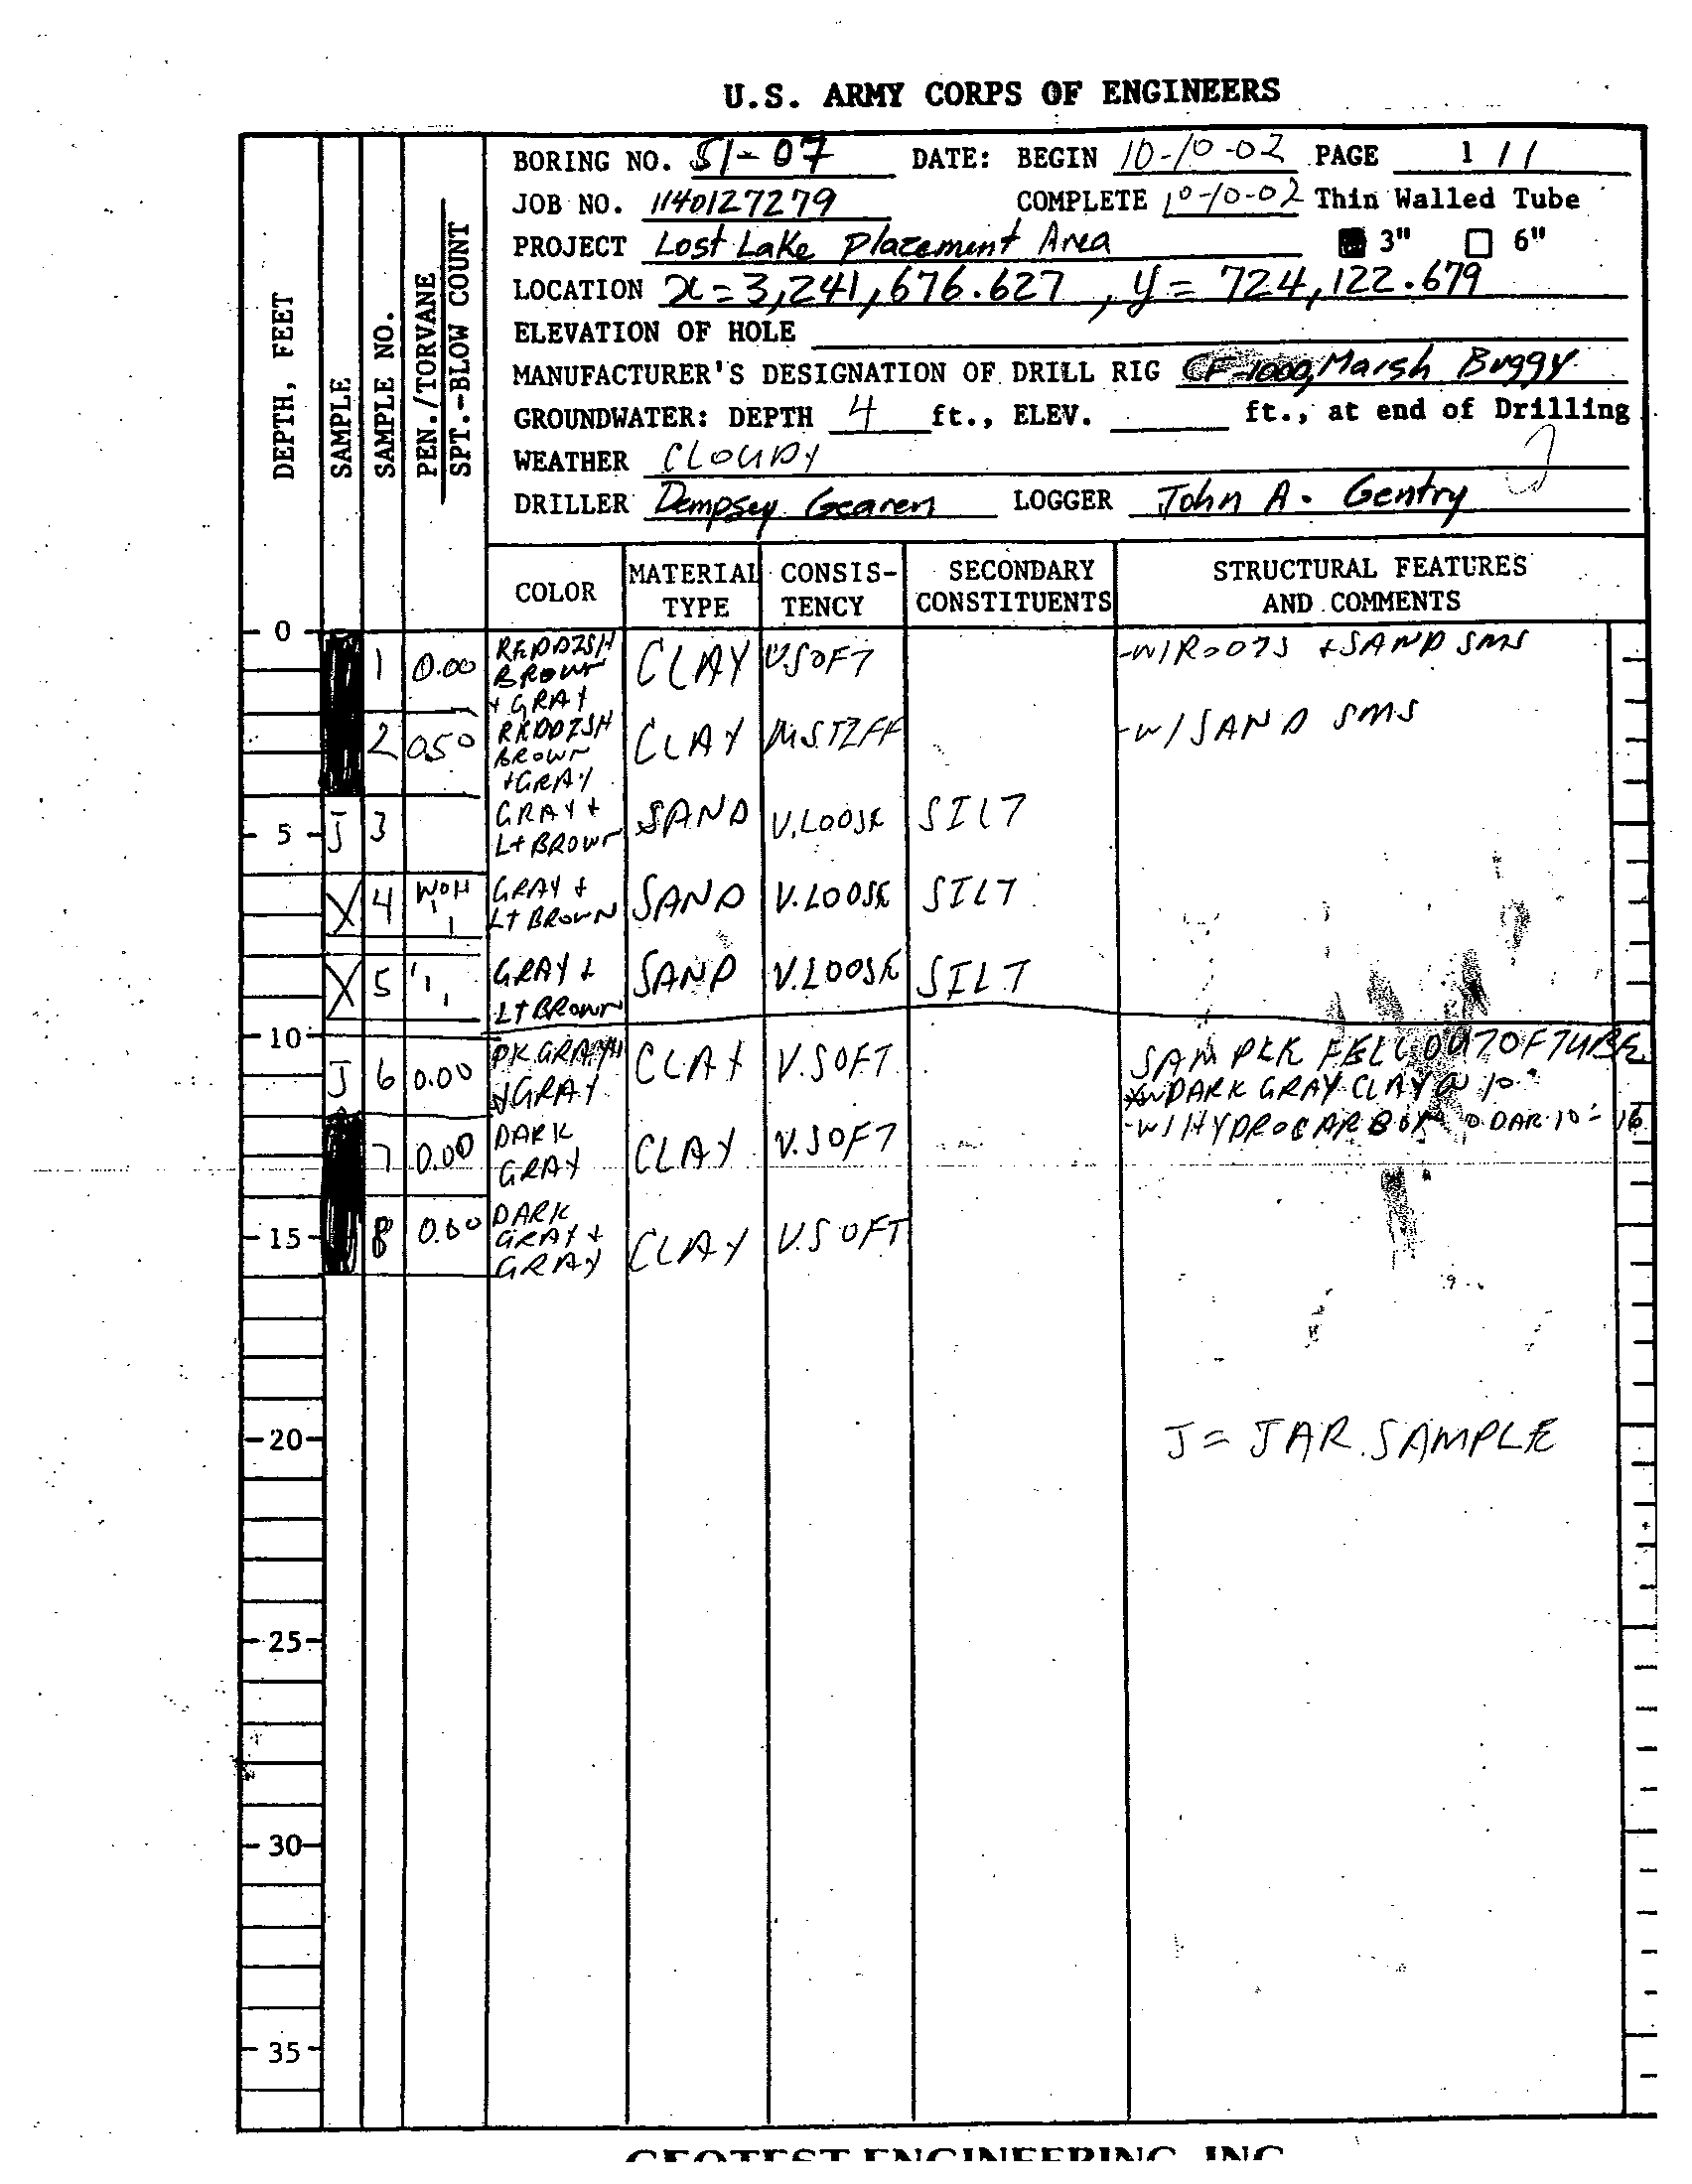 U.S. ARMY CORPS OF ENGINEERS
BORING NO. SI-07 DATE: BEGIN 10-10-02 PAGE 1 / 1
JOB NO. 1140127279 COMPLETE 10-10-02 Thin Walled Tube
PROJECT Lost Lake Placement Area 3" 6"
LOCATION x=3,241,676.627, y= 724,122.679
ELEVATION OF HOLE
MANUFACTURER'S DESIGNATION OF DRILL RIG CF-1000, Marsh Buggy
GROUNDWATER: DEPTH 4 ft., ELEV. ft., at end of Drilling
WEATHER CLOUDY
DRILLER Dempsey Gearen LOGGER John A. Gentry
DEPTH, FEET
SAMPLE
SAMPLE NO.
PEN./TORVANE
SPT.-BLOW COUNT
COLOR MATERIAL TYPE CONSIS-TENCY SECONDARY CONSTITUENTS STRUCTURAL FEATURES AND COMMENTS
0
1 0.00 REDDISH BROWN + GRAY CLAY V SOFT -W/ROOTS +SAND SMS
2 0.50 REDDISH BROWN +GRAY CLAY M.STIFF -W/SAND SMS
5 J 3 GRAY + LT BROWN SAND V.LOOSE SILT
X 4 WOH 1 1 GRAY + LT BROWN SAND V.LOOSE SILT
X 5 1 1 1 GRAY + LT BROWN SAND V.LOOSE SILT
10
J 6 0.00 +GRAY CLAY V.SOFT SAMPLE FELL OUT OF TUBE
DARK GRAY CLAY @ 10'
-W/HYDROCARBON ODAR 10'-16'
7 0.00 DARK GRAY CLAY V.SOFT
15 8 0.00 DARK GRAY + GRAY CLAY V.SOFT
20 J = JAR SAMPLE
25
30
35
GEOTEST ENGINEERING, INC.